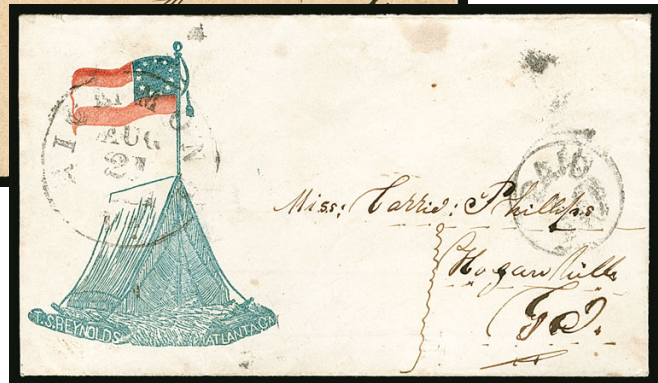 AUG
PAID
Miss: Carrie: Phillips
Hogansville
Ga.
T.S. REYNOLDS ATLANTA, GA